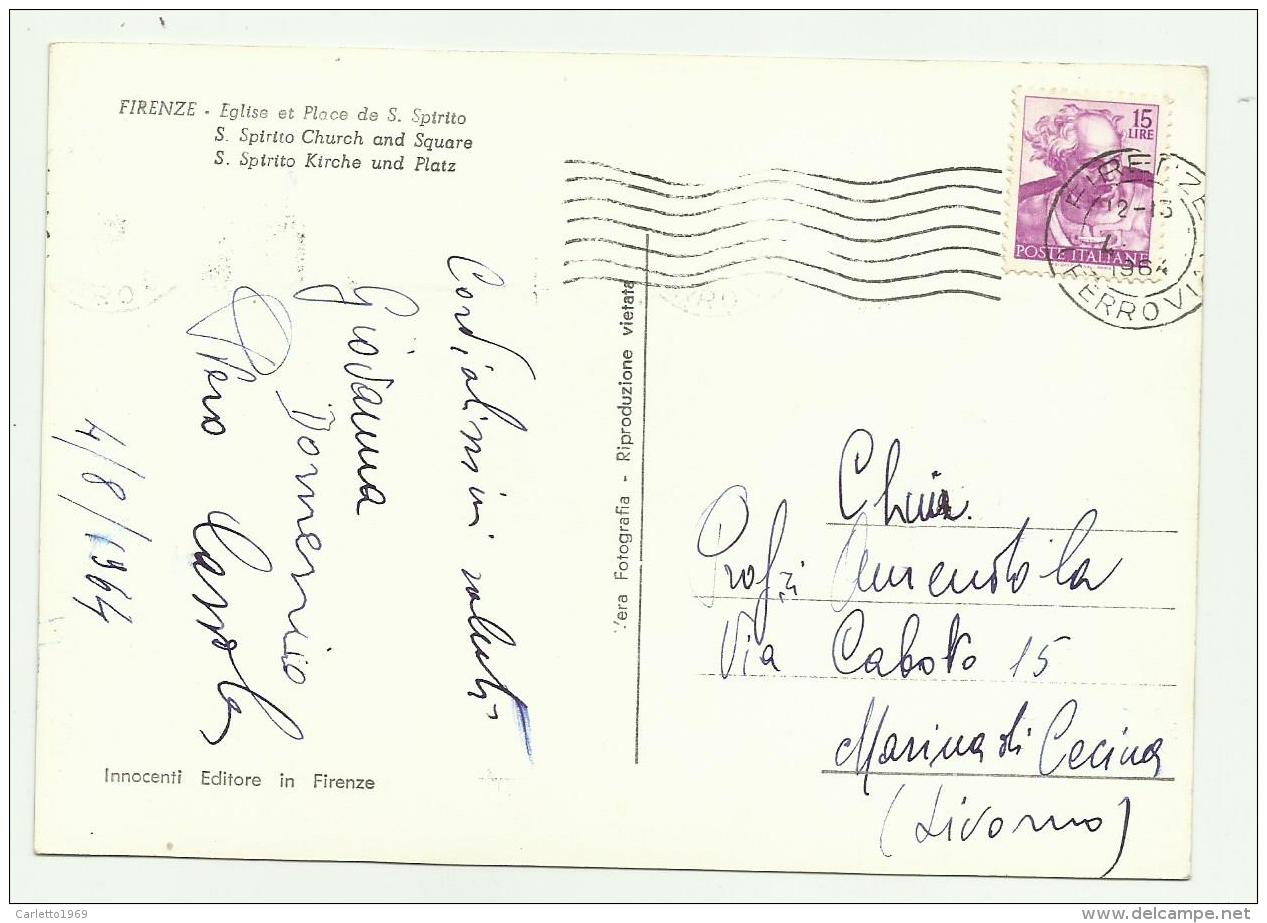 FIRENZE - Eglise et Place de S. Spirito
S. Spirito Church and Square
S. Spirito Kirche und Platz
15
LIRE
POSTE ITALIANE
FIRENZE
12-13
1964
FERROVIA
Cordialissimi saluti
Giovanna
Domenico
Piero
4/8/1964
Vera Fotografia - Riproduzione vietata
Prof.
Via Caboto 15
Marina di Cecina
(Livorno)
Innocenti Editore in Firenze
Carletto1969
delcampe.net